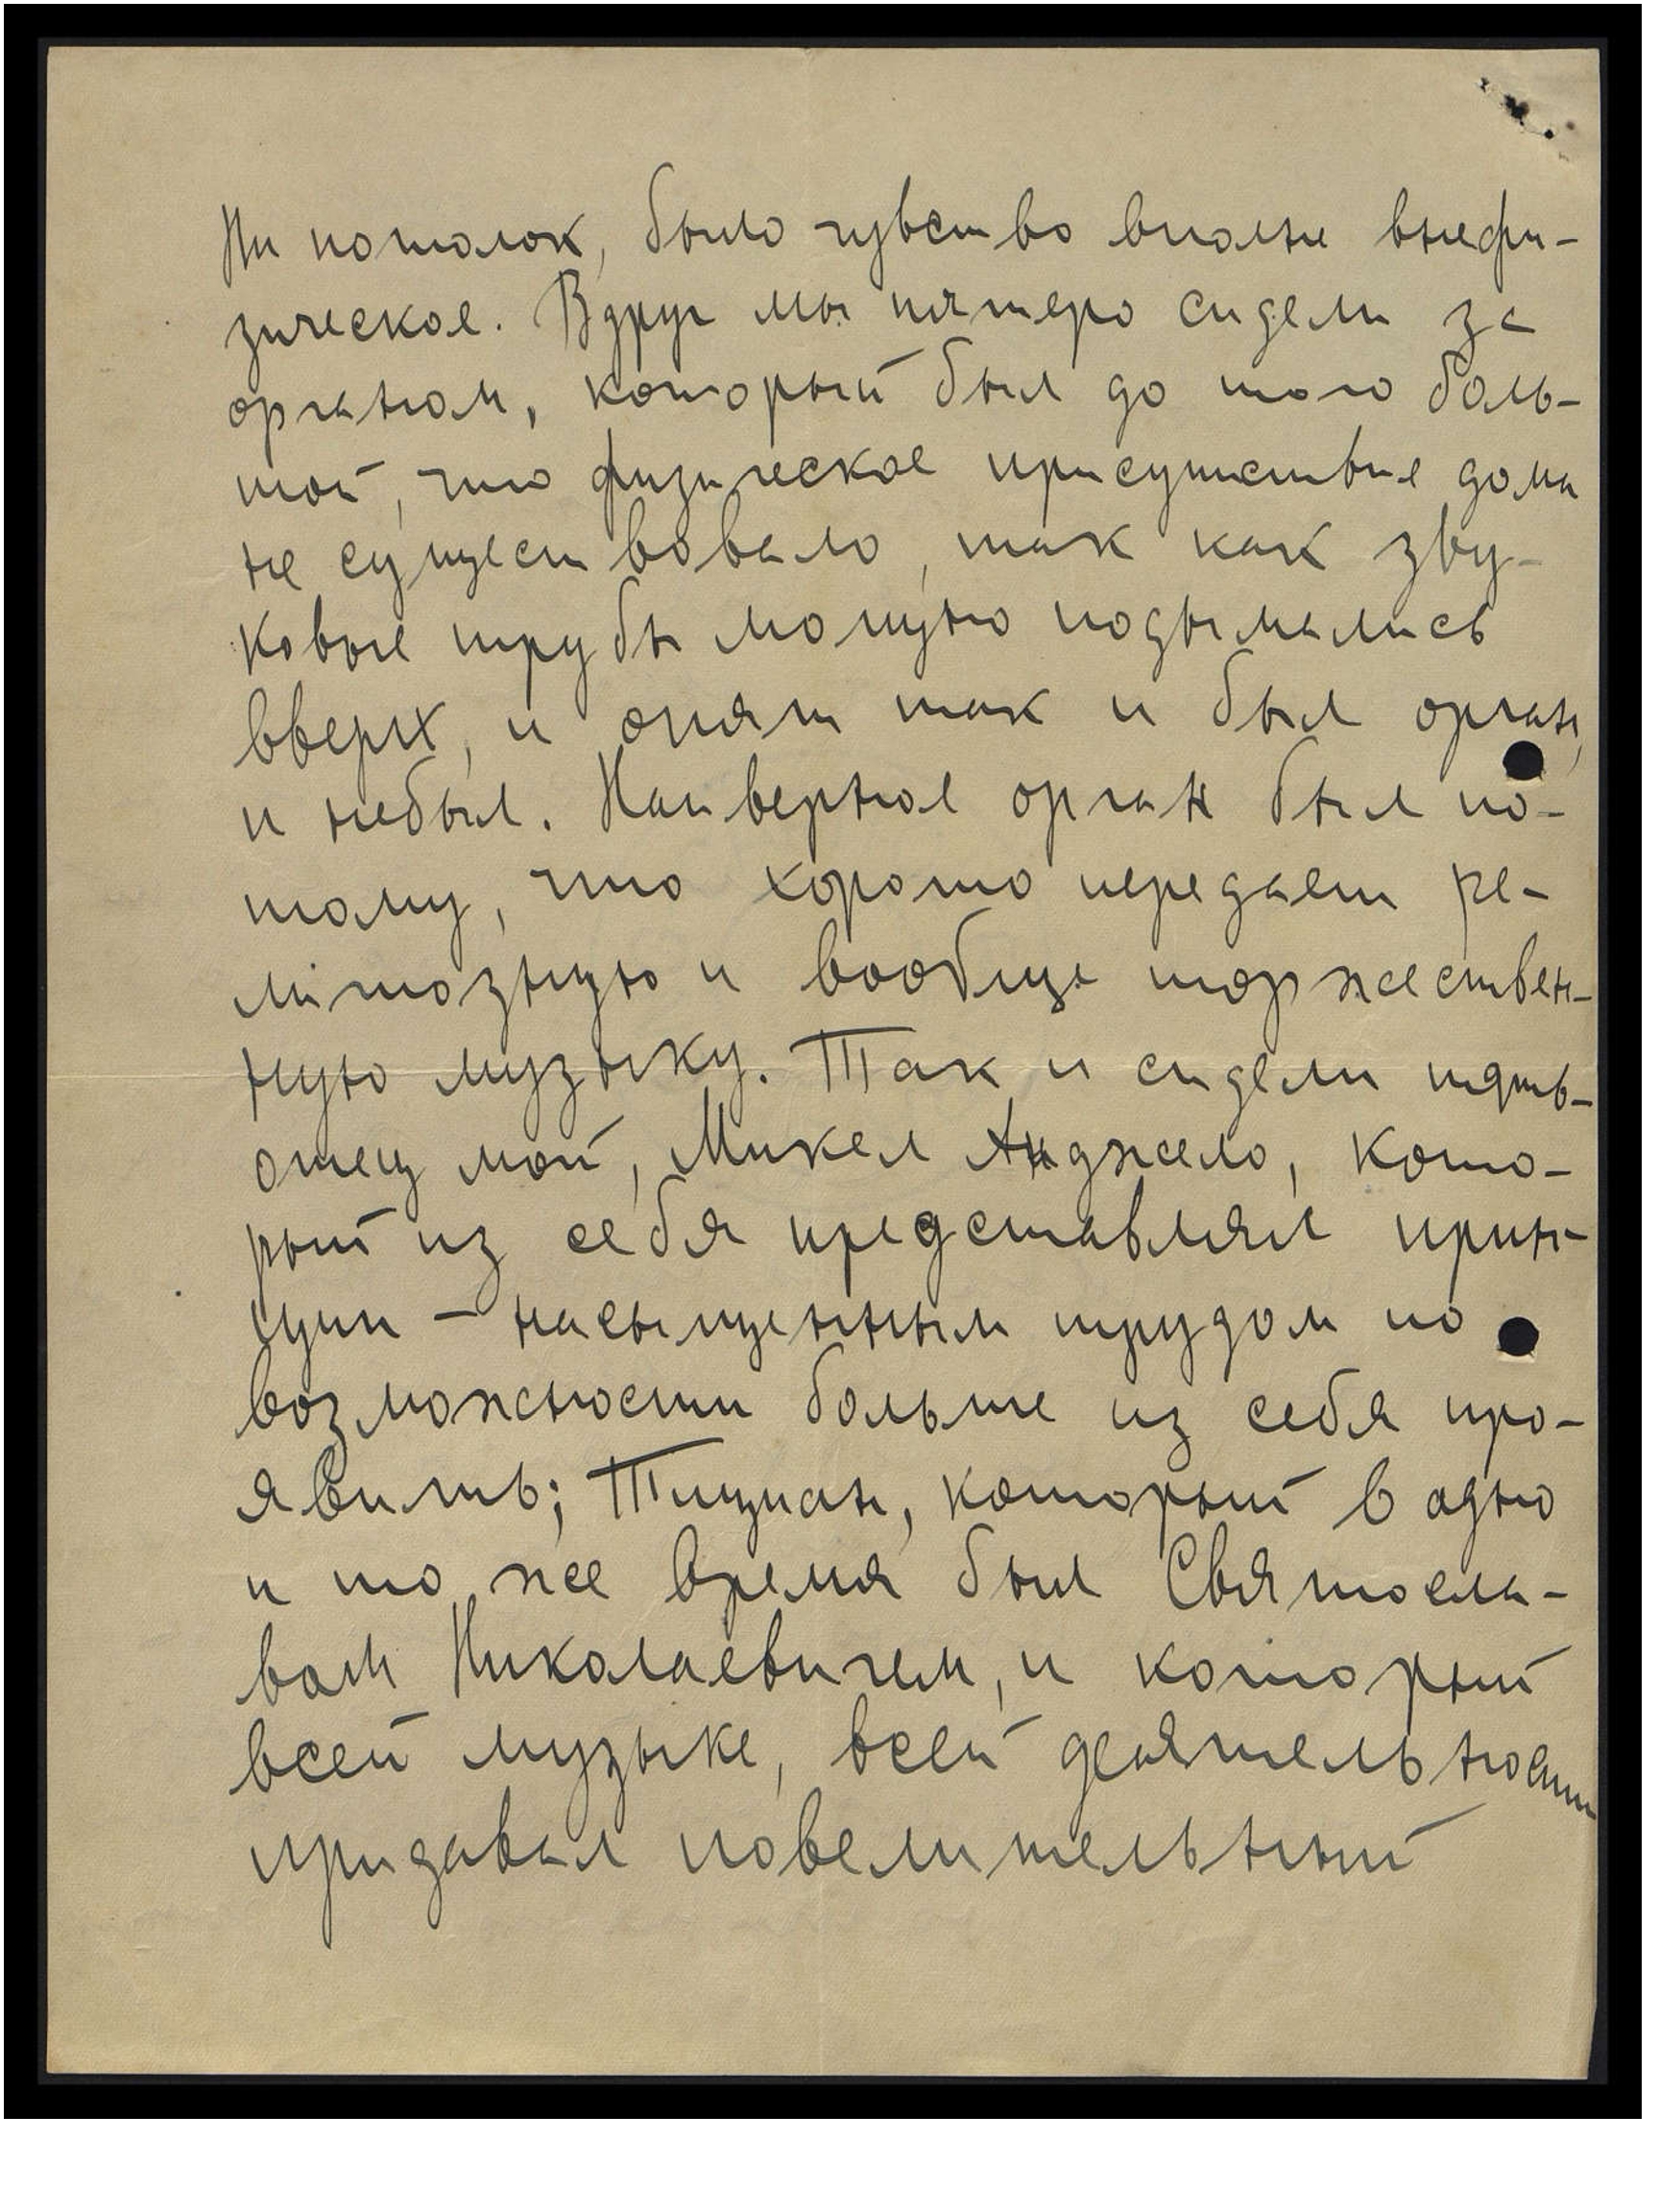 Ни потолок, было чувство вполне внефи-
зическое. Вдруг мы пятеро сидели за
органом, который был до того боль-
шой, что физическое присутствие дома
не существовало, так как зву-
ковые трубы мощно подымались
вверх, и опять так и был орган,
и небыл. Наиверное орган был по-
тому, что хорошо передает ре-
лигиозную и вообще торжествен-
ную музыку. Так и сидели
отец мой, Микел Анджело, кото-
рый из себя представлял прин-
цип – насыщенным трудом по
возможности больше из себя про-
явить; Тициан, который в одно
и то же время был Святосла-
вом Николаевичем, и который
всей музыке, всей деятельности
придавал повелительный